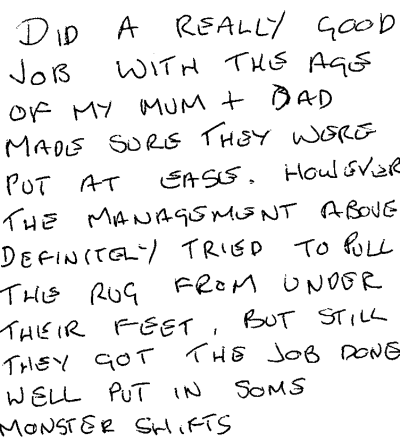 DID A REALLY GOOD
JOB WITH THE AGE
OF MY MUM + DAD
MADE SURE THEY WERE
PUT AT EASE. HOWEVER
THE MANAGEMENT ABOVE
DEFINITELY TRIED TO PULL
THE RUG FROM UNDER
THEIR FEET, BUT STILL
THEY GOT THE JOB DONE
WELL PUT IN SOME
MONSTER SHIFTS